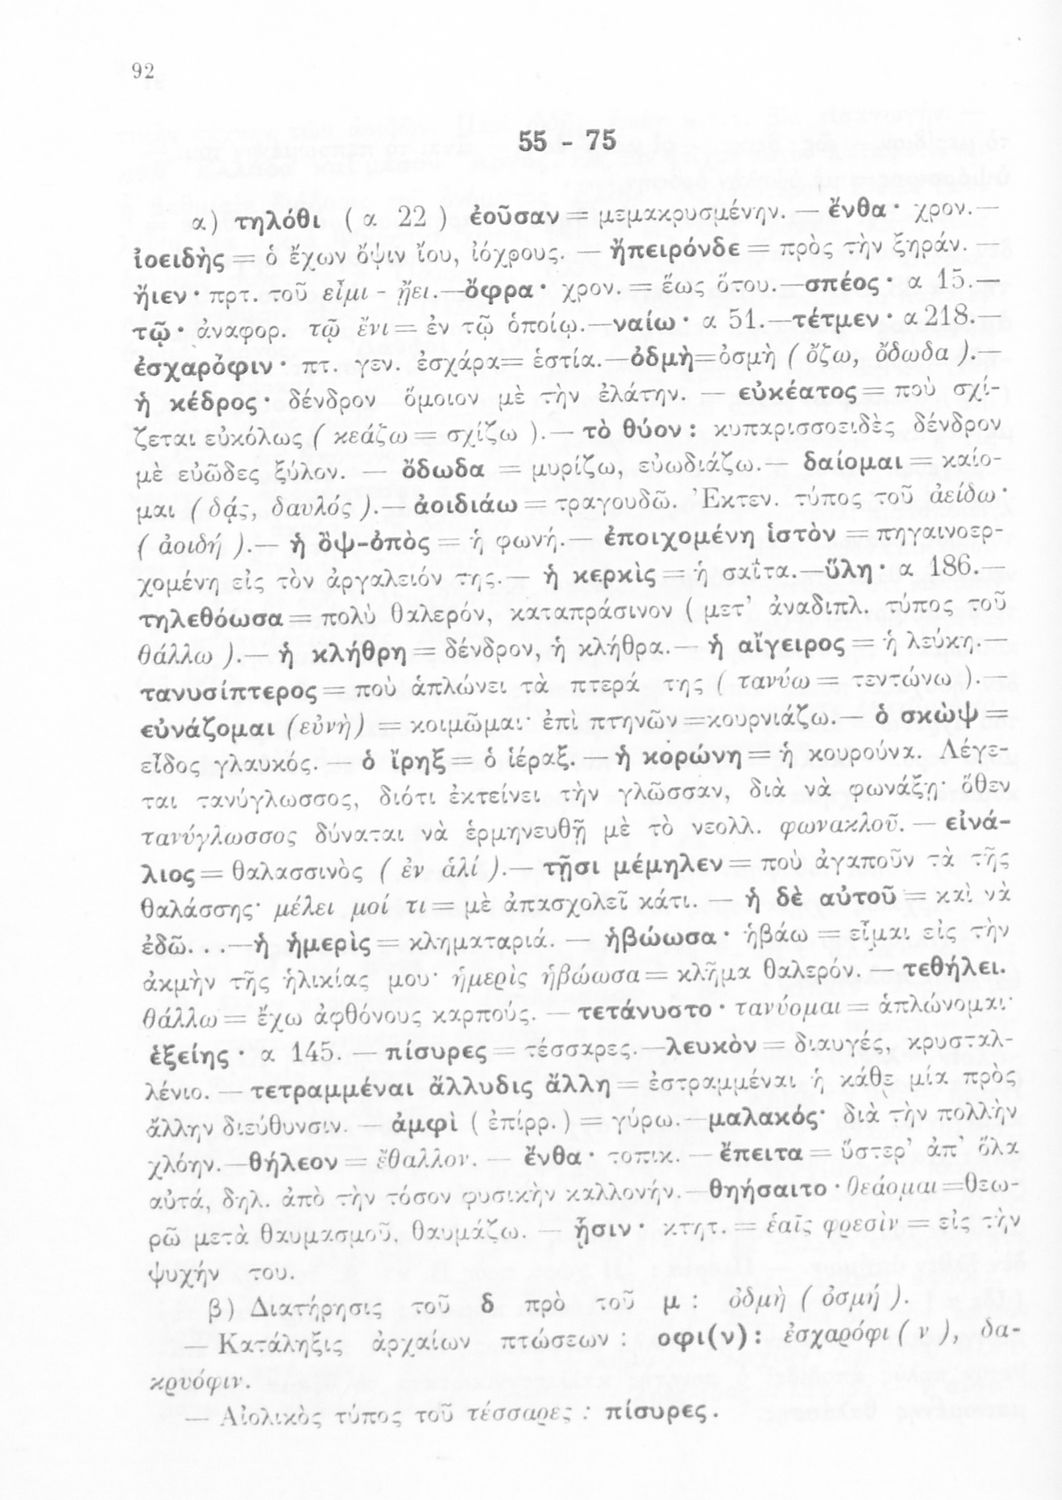 92
55 - 75
α) τηλόθι ( α 22 ) ἐοῦσαν = μεμακρυσμένην. — ἔνθα· χρον.—
ἰοειδὴς = ὁ ἔχων ὄψιν ἴου, ἰόχρους. — ἤπειρόνδε = πρὸς τὴν ξηράν. —
ἤιεν· πρτ. τοῦ εἶμι - ᾔει.—ὄφρα· χρον. = ἕως ὅτου.—σπέος· α 15.—
τῷ· ἀναφορ. τῷ ἔνι = ἐν τῷ ὁποίῳ.—ναίω· α 51.—τέτμεν· α 218.—
ἐσχαρόφιν· πτ. γεν. ἐσχάρα= ἑστία.—ὀδμὴ=ὀσμὴ ( ὄζω, ὄδωδα ).—
ἡ κέδρος· δένδρον ὅμοιον μὲ τὴν ἐλάτην. — εὐκέατος = ποὺ σχί-
ζεται εὐκόλως ( κεάζω = σχίζω ).— τὸ θύον : κυπαρισσοειδὲς δένδρον
μὲ εὐῶδες ξύλον. — ὄδωδα = μυρίζω, εὐωδιάζω.— δαίομαι = καίο-
μαι ( δᾴς, δαυλός ).— ἀοιδιάω = τραγουδῶ. Ἐκτεν. τύπος τοῦ ἀείδω·
( ἀοιδή ).— ἡ ὄψ-ὀπὸς = ἡ φωνή.— ἐποιχομένη ἱστὸν = πηγαινοερ-
χομένη εἰς τὸν ἀργαλειόν της.— ἡ κερκὶς = ἡ σαΐτα.—ὕλη· α 186.—
τηλεθόωσα = πολὺ θαλερόν, καταπράσινον ( μετ’ ἀναδιπλ. τύπος τοῦ
θάλλω ).— ἡ κλήθρη = δένδρον, ἡ κλήθρα.— ἡ αἴγειρος = ἡ λεύκη.—
τανυσίπτερος = ποὺ ἁπλώνει τὰ πτερά της ( τανύω = τεντώνω ).—
εὐνάζομαι (εὐνὴ) = κοιμῶμαι· ἐπὶ πτηνῶν =κουρνιάζω.— ὁ σκὼψ =
εἶδος γλαυκός. — ὁ ἴρηξ = ὁ ἱέραξ. — ἡ κορώνη = ἡ κουρούνα. Λέγε-
ται τανύγλωσσος, διότι ἐκτείνει τὴν γλῶσσαν, διὰ νὰ φωνάξῃ· ὅθεν
τανύγλωσσος δύναται νὰ ἑρμηνευθῇ μὲ τὸ νεολλ. φωνακλοῦ. — εἰνά-
λιος = θαλασσινὸς ( ἐν ἁλί ).— τῇσι μέμηλεν = ποὺ ἀγαποῦν τὰ τῆς
θαλάσσης· μέλει μοί τι = μὲ ἀπασχολεῖ κάτι. — ἡ δὲ αὐτοῦ = καὶ νὰ
ἐδῶ. . .—ἡ ἡμερὶς = κληματαριά. — ἡβώωσα· ἡβάω = εἶμαι εἰς τὴν
ἀκμὴν τῆς ἡλικίας μου· ἡμερὶς ἡβώωσα = κλῆμα θαλερόν. — τεθήλει.
θάλλω = ἔχω ἀφθόνους καρπούς. — τετάνυστο· τανύομαι = ἁπλώνομαι·
ἑξείης· α 145. — πίσυρες = τέσσαρες.—λευκὸν = διαυγές, κρυσταλ-
λένιο. — τετραμμέναι ἄλλυδις ἄλλη = ἐστραμμέναι ἡ κάθε μία πρὸς
ἄλλην διεύθυνσιν. — ἀμφὶ ( ἐπίρρ. ) = γύρω.—μαλακός· διὰ τὴν πολλὴν
χλόην.—θήλεον = ἔθαλλον. — ἔνθα· τοπικ. — ἔπειτα = ὕστερ’ ἀπ’ ὅλα
αὐτά, δηλ. ἀπὸ τὴν τόσον φυσικὴν καλλονήν.—θηήσαιτο· θεάομαι =θεω-
ρῶ μετὰ θαυμασμοῦ, θαυμάζω. — ᾗσιν· κτητ. = ἑαῖς φρεσὶν = εἰς τὴν
ψυχήν του.
β) Διατήρησις τοῦ δ πρὸ τοῦ μ : ὀδμὴ ( ὀσμή ).
— Κατάληξις ἀρχαίων πτώσεων : οφι(ν): ἐσχαρόφι ( ν ), δα-
κρυόφιν.
— Αἰολικὸς τύπος τοῦ τέσσαρες : πίσυρες.